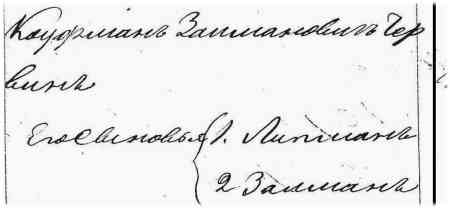 Кауфманъ Залмановичъ Чер
винъ
Его сыновья 1. Липманъ
2 Залманъ